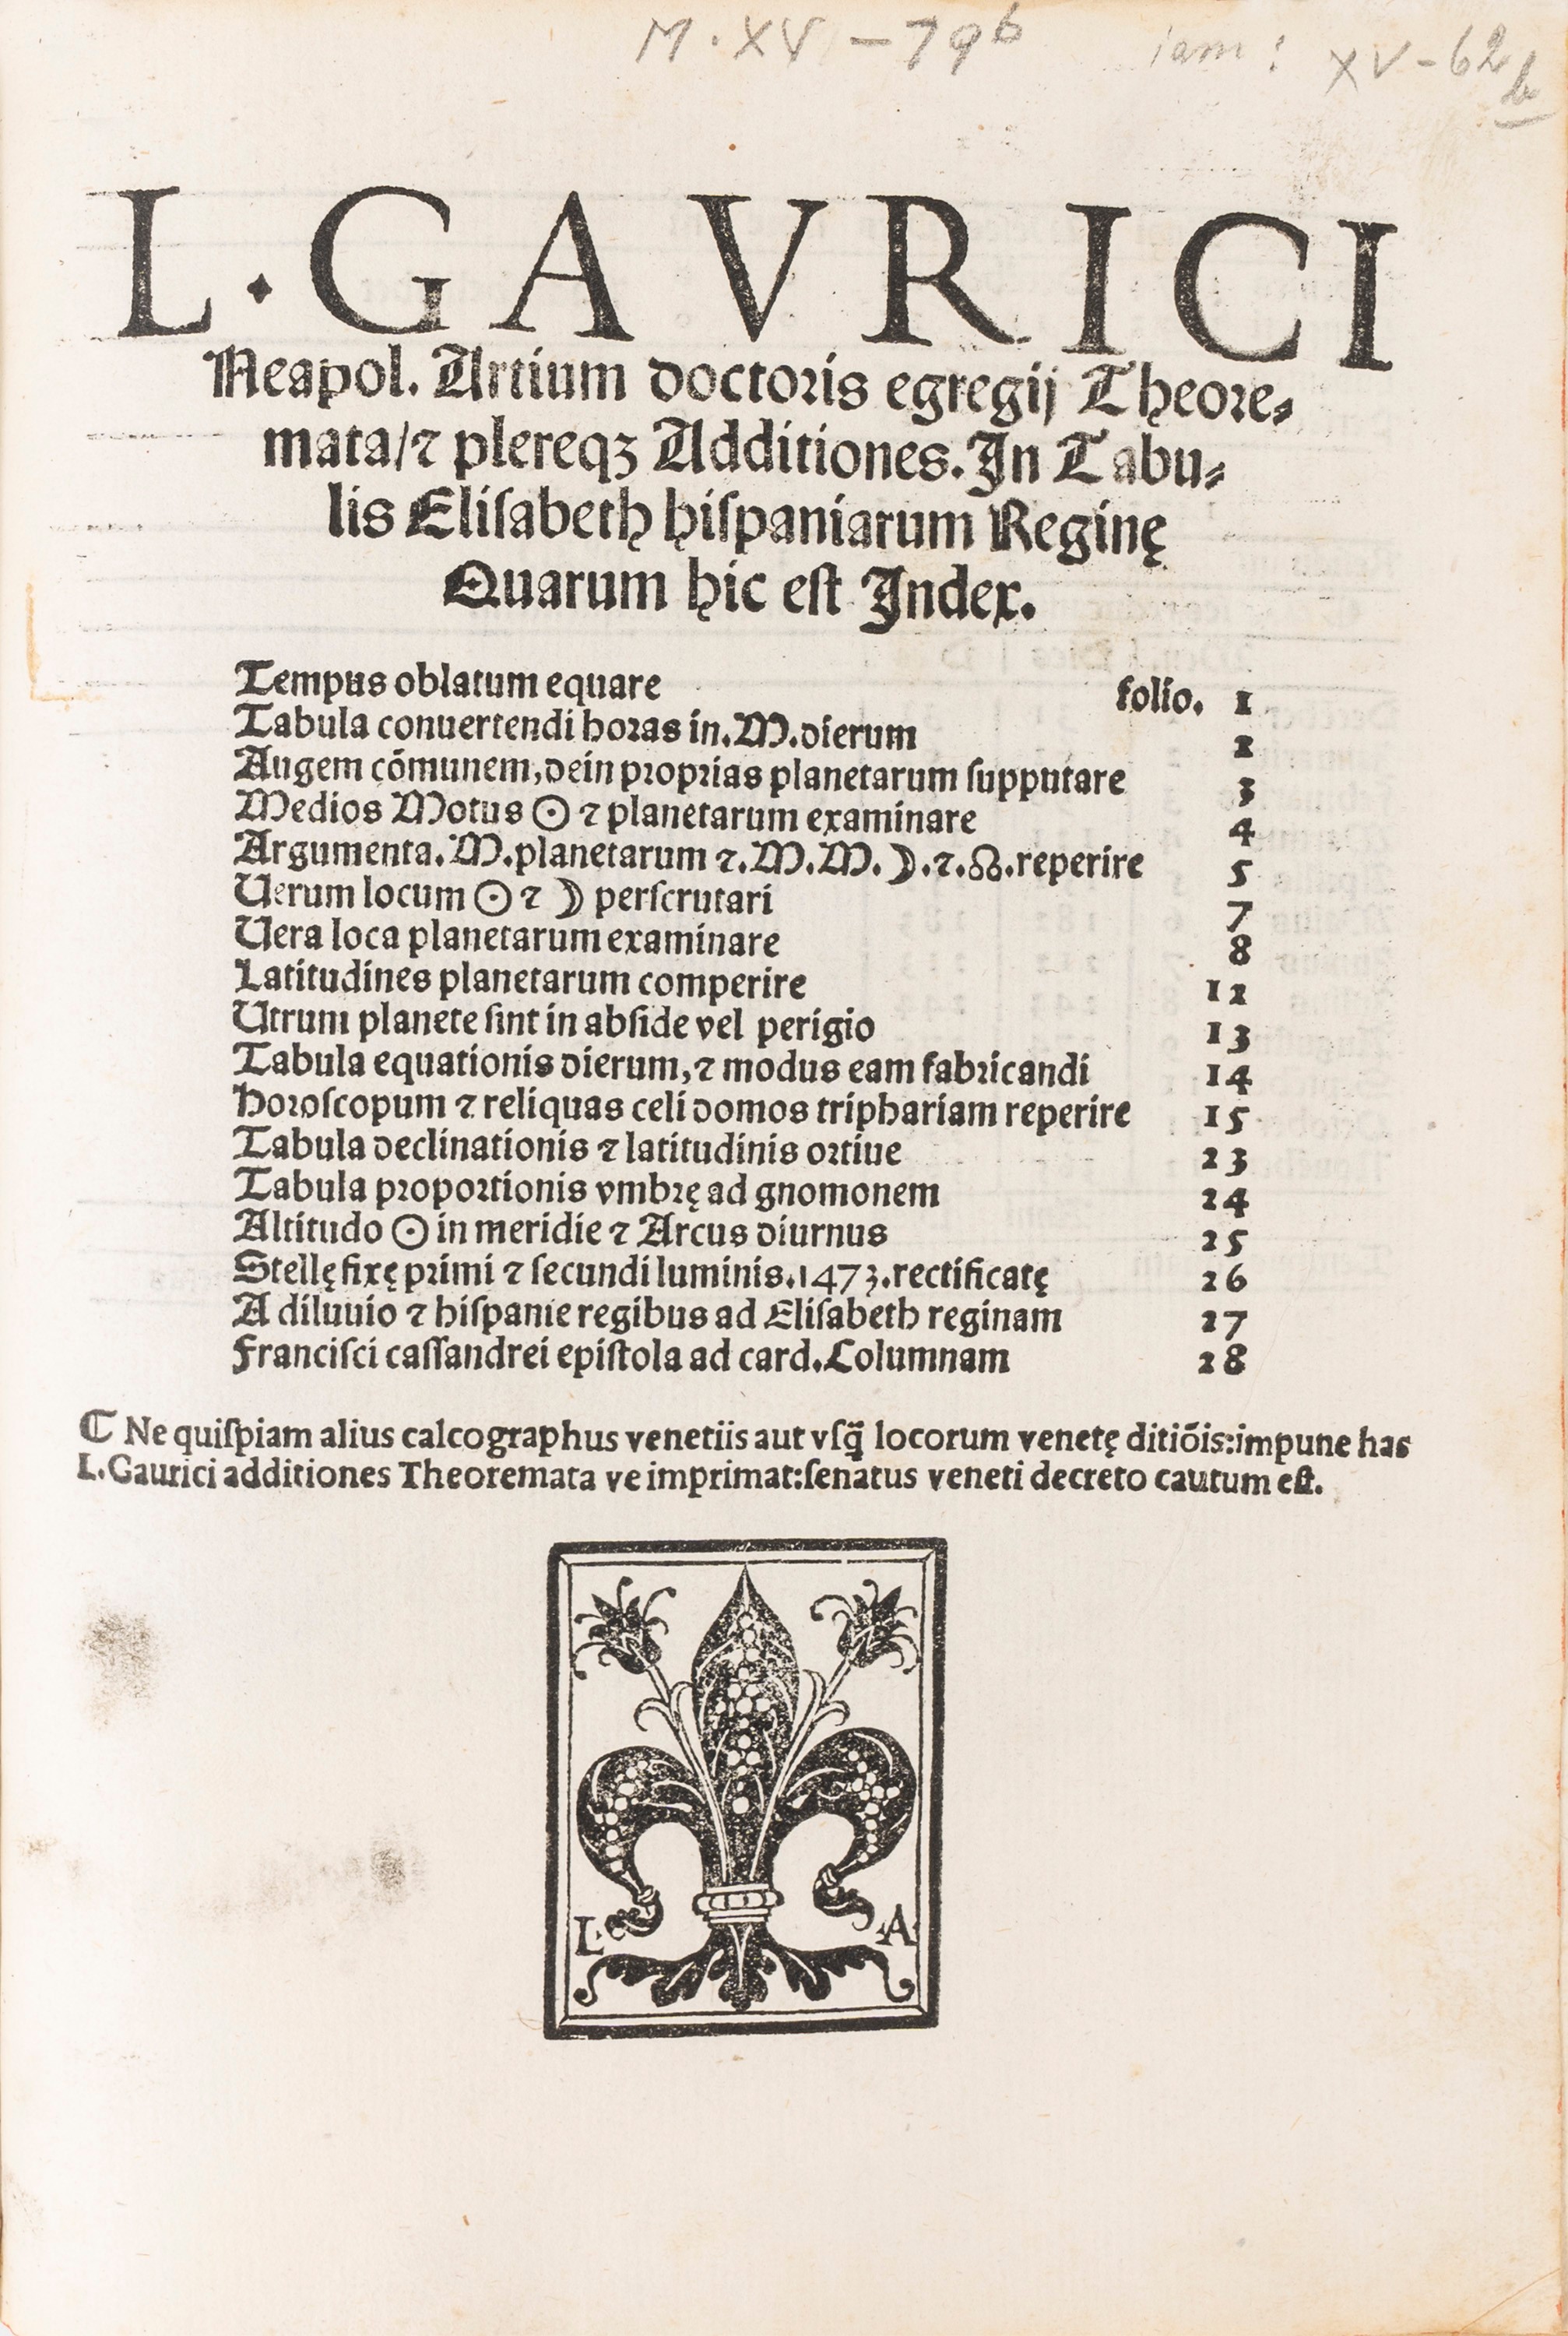 M. XV - 79b iam: XV - 62 b
L. GAVRICI
Neapol. Artium doctoris egregij Thęore⸗
mata/⁊ plereqꝫ Additiones. In Tabu⸗
lis Eliſabetḩ ḩiſpaniarum Reginę
Quarum ḩic eſt Index.
Tempus oblatum equare folio. 1
Tabula conuertendi horas in. M. dierum 2
Augem cōmunem, dein proprias planetarum ſupputare 3
Medios Motus ☉ ⁊ planetarum examinare 4
Argumenta. M. planetarum ⁊. M. M. ☽. ⁊. ☊. reperire 5
Uerum locum ☉ ⁊ ☽ perſcrutari 7
Uera loca planetarum examinare 8
Latitudines planetarum comperire 12
Utrum planete ſint in abſide vel perigio 13
Tabula equationis dierum, ⁊ modus eam fabricandi 14
Horoſcopum ⁊ reliquas celi domos triphariam reperire 15
Tabula declinationis ⁊ latitudinis ortiue 23
Tabula proportionis vmbrę ad gnomonem 24
Altitudo ☉ in meridie ⁊ Arcus diurnus 25
Stellę fixę primi ⁊ ſecundi luminis. 1473. rectificatę 26
A diluuio ⁊ hiſpanie regibus ad Eliſabeth reginam 27
Franciſci caſſandrei epiſtola ad card. Columnam 28
ℂ Ne quiſpiam alius calcographus venetiis aut vſq̄ locorum venetę ditiōis: impune has
L. Gaurici additiones Theoremata ve imprimat: ſenatus veneti decreto cautum eſt.
L. A.